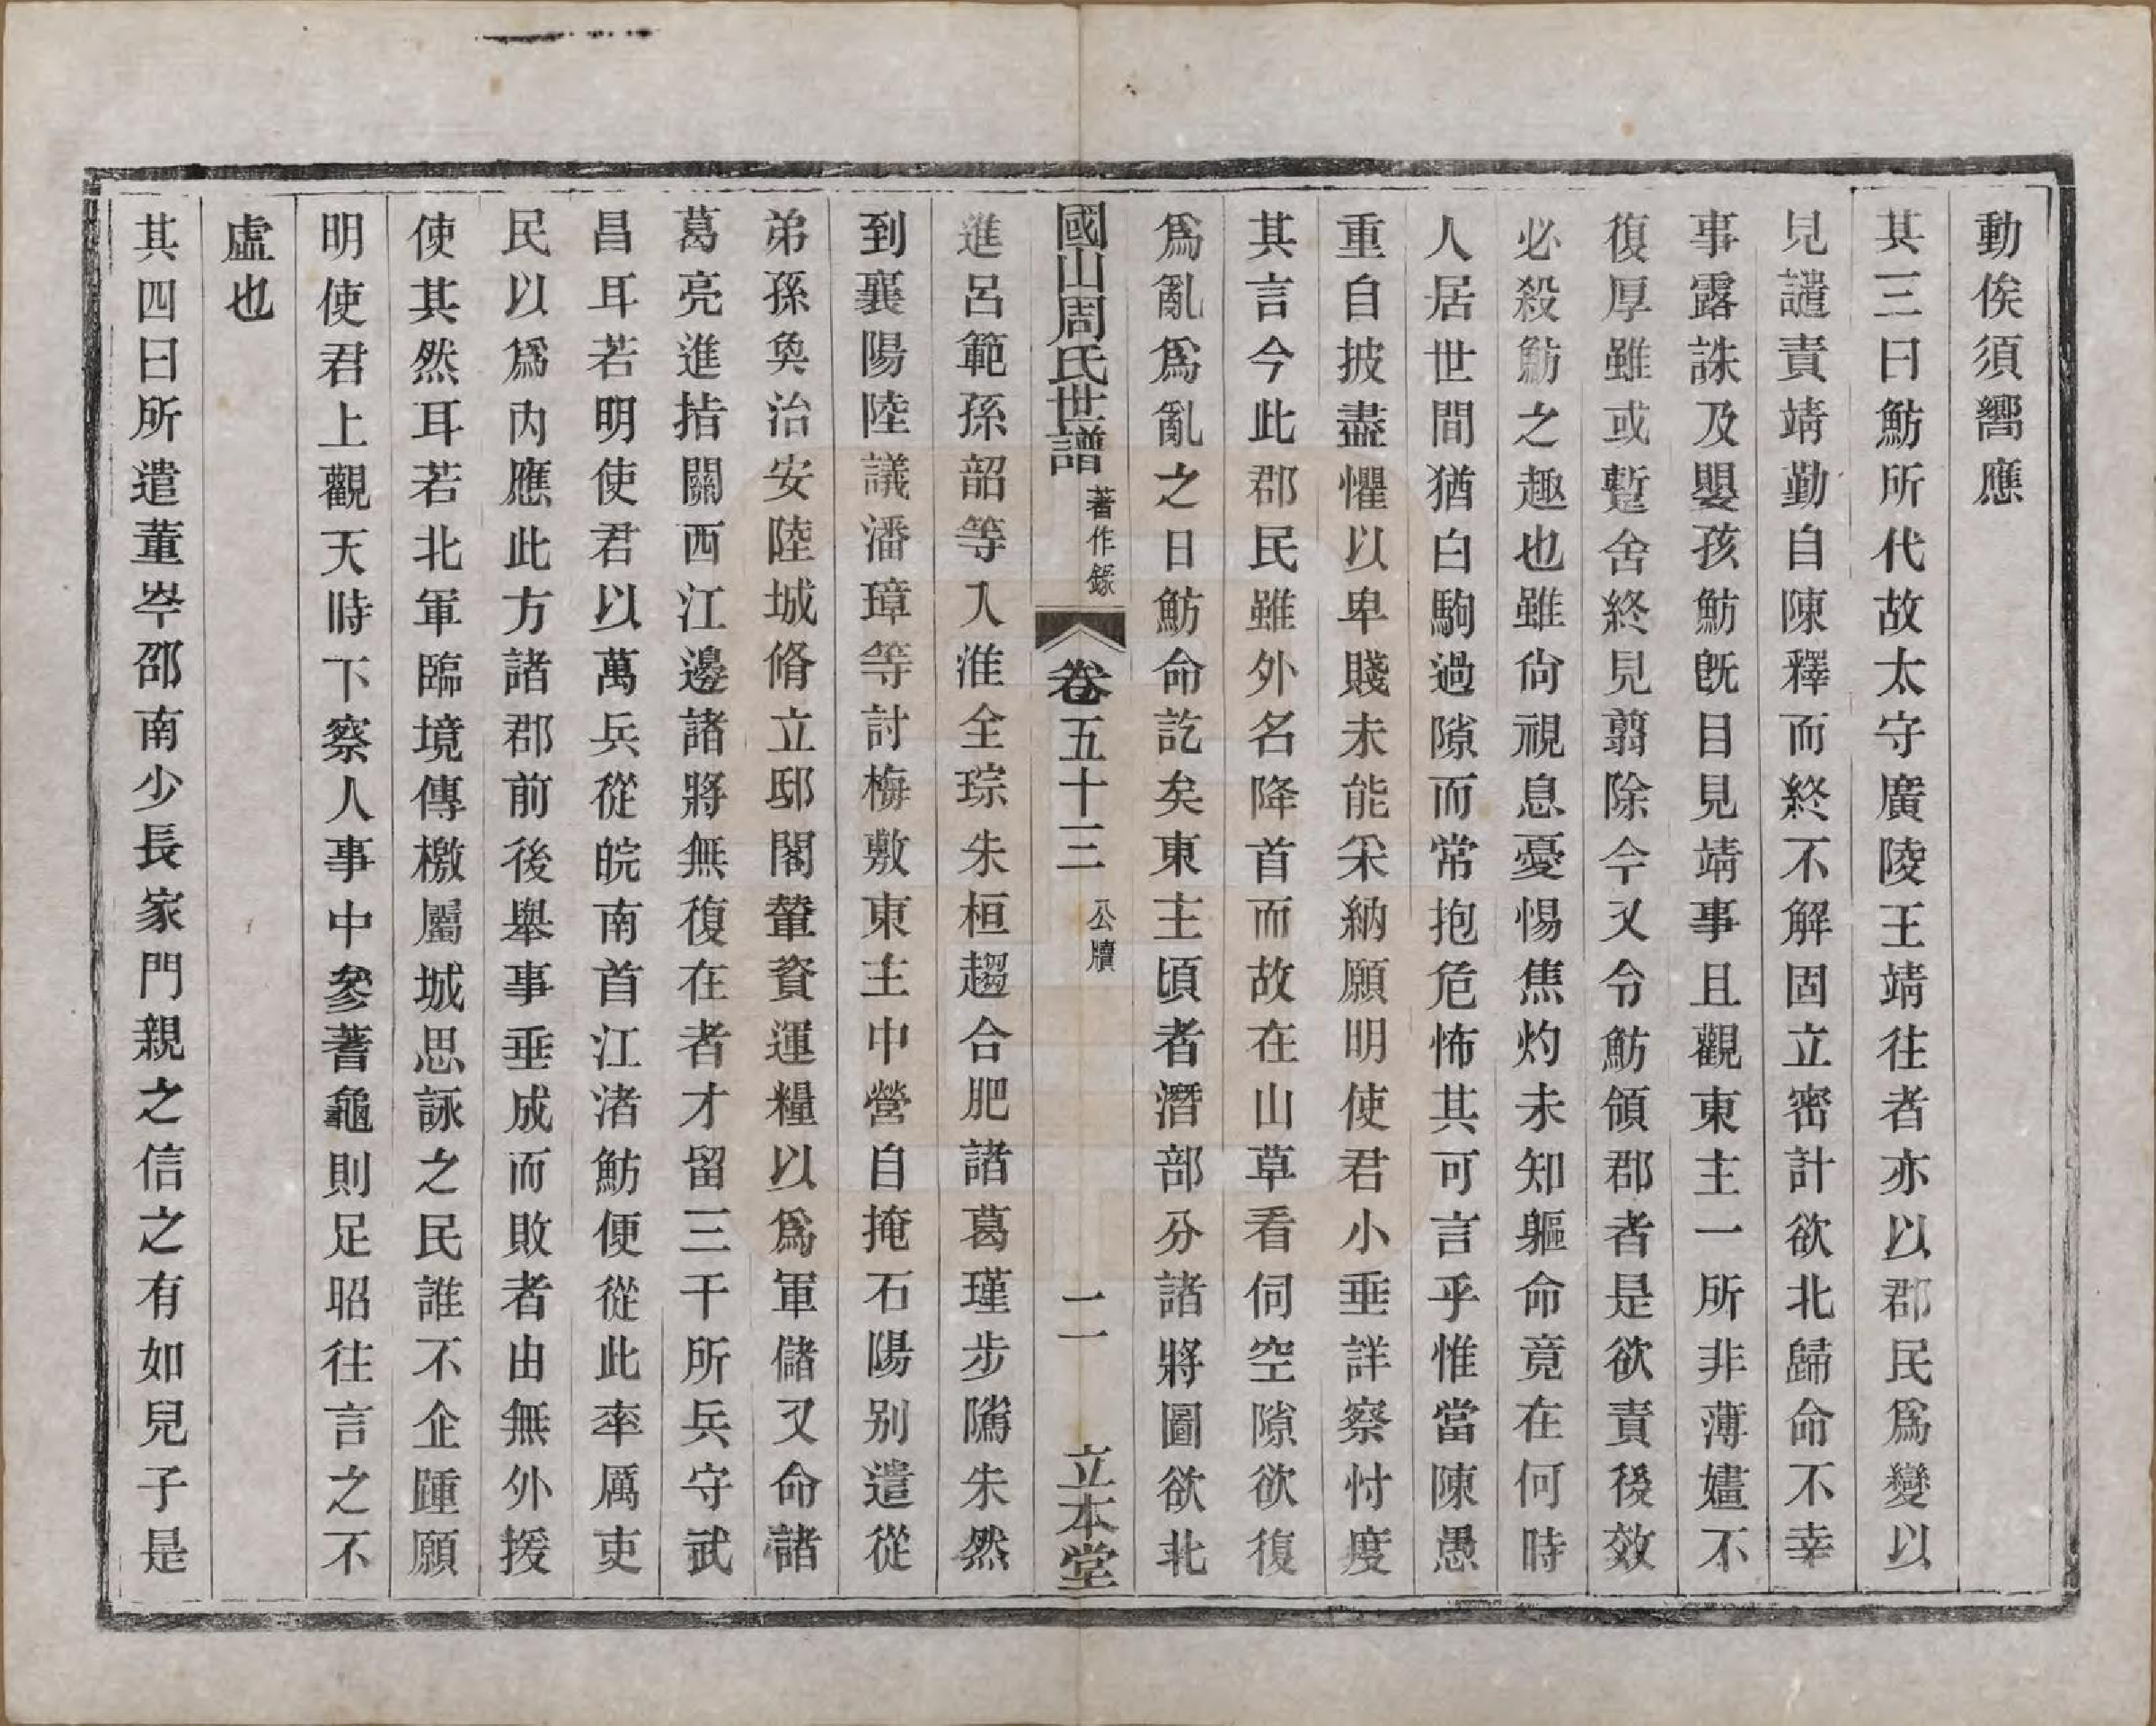 動俟須嚮應
其三曰魴所代故太守廣陵王靖往者亦以郡民爲變以
見譴責靖勤自陳釋而終不解固立密計欲北歸命不幸
事露誅及嬰孩魴旣目見靖事且觀東主一所非薄嫿不
復厚雖或暫舍終見翦除今又令魴領郡者是欲責後效
必殺魴之趣也雖尙視息憂惕焦灼未知軀命竟在何時
人居世間猶白駒過隙而常抱危怖其可言乎惟當陳愚
重自披盡懼以卑賤未能采納願明使君小垂詳察忖度
其言今此郡民雖外名降首而故在山草看伺空隙欲復
爲亂爲亂之日魴命訖矣東主頃者潛部分諸將圖欲北
國山周氏世譜 著作錄 卷五十三 公牘 二 立本堂
進呂範孫韶等入淮全琮朱桓趨合肥諸葛瑾步隲朱然
到襄陽陸議潘璋等討梅敷東主中營自掩石陽別遣從
弟孫奐治安陸城脩立邸閣輦資運糧以爲軍儲又命諸
葛亮進指關西江邊諸將無復在者才留三千所兵守武
昌耳若明使君以萬兵從皖南首江渚魴便從此率厲吏
民以爲內應此方諸郡前後舉事垂成而敗者由無外援
使其然耳若北軍臨境傳檄屬城思詠之民誰不企踵願
明使君上觀天時下察人事中參蓍龜則足昭往言之不
虛也
其四曰所遣董岑邵南少長家門親之信之有如兒子是